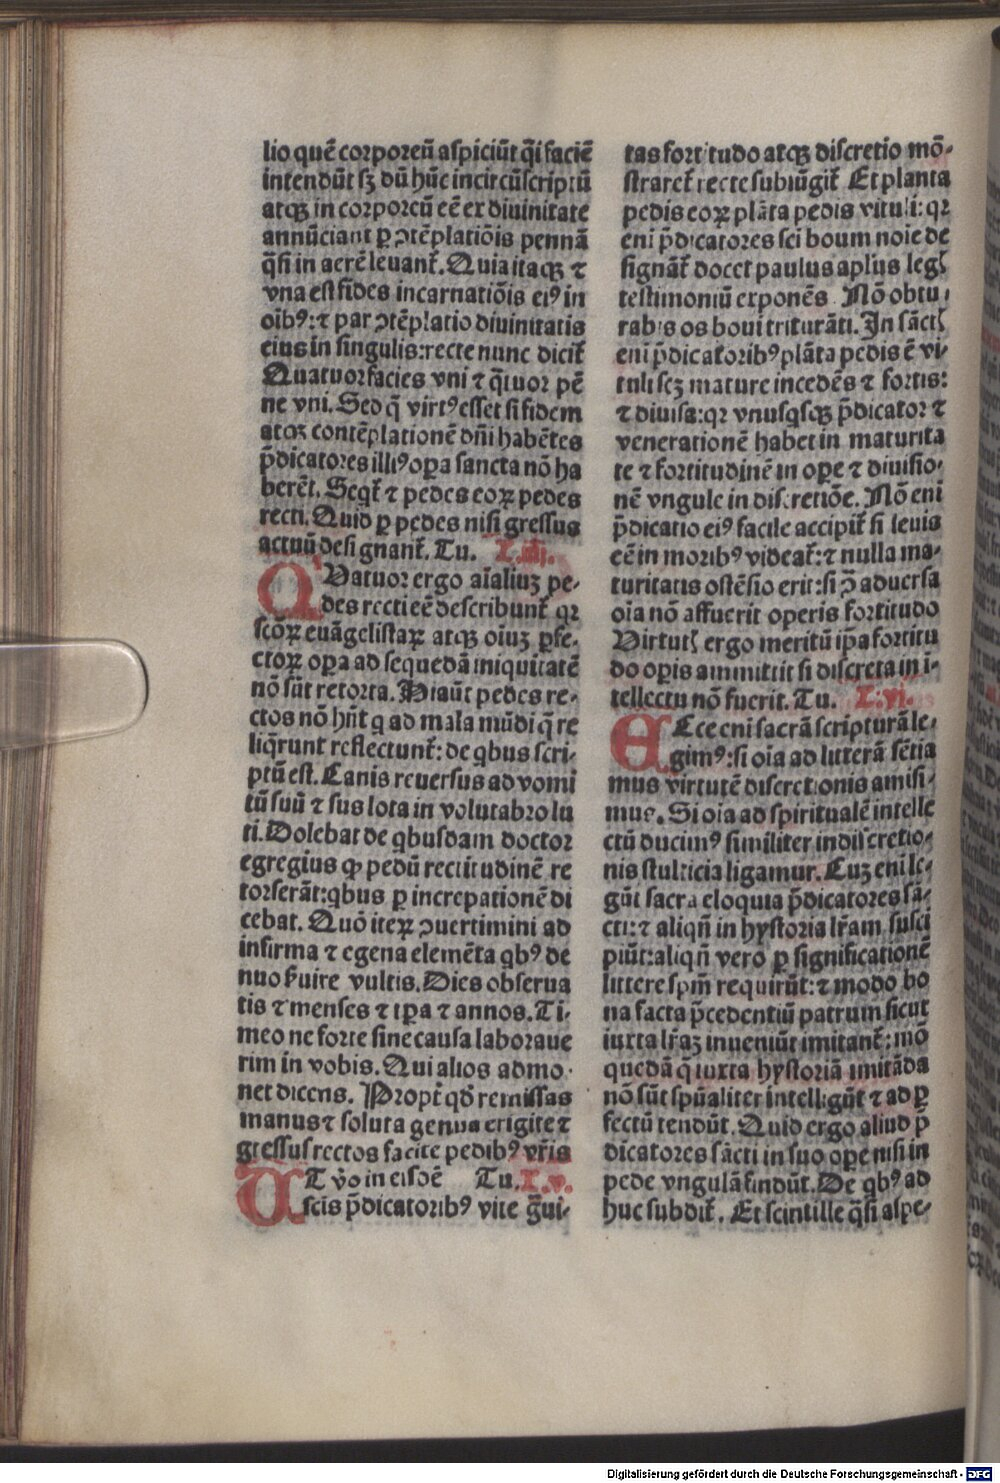 lio quē corporeū aſpiciūt q̄i faciē
intendūt ſꝫ dū hūc incircūſcriptū
atqꝫ in corporeū eē ex diuinitate
annūciant ꝑ ↄtēplatiōis pennā
q̄ſi in aerē leuant᷑. Quia itaqꝫ ⁊
vna eſt fides incarnatiōis eiꝰ in
oībꝰ: ⁊ par ↄtēplatio diuinitatis
eius in ſingulis: recte nunc dicit᷑
Quatuor facies vni ⁊ q̄tuor pē
ne vni. Sed q̄ virtꝰ eſſet ſi fidem
atqꝫ contēplationē dn̄i habētes
p̄dicatores illiꝰ oꝑa ſancta nō ha
berēt. Seqt᷑ ⁊ pedes eoꝝ pedes
recti. Quid ꝑ pedes niſi greſſus
actuū deſignant᷑. Tu. C.iiij.
QUatuor ergo aīaliuꝫ pe-
des recti eē deſcribunt᷑ qꝛ
ſcōꝝ euāgeliſtaꝝ atqꝫ oīuꝫ ꝑfe-
ctoꝝ oꝑa ad ſequedā iniquitatē
nō ſūt retorta. Hiaūt pedes re-
ctos nō hn̄t q ad mala mūdi q̄ re
liq̄runt reflectunt᷑: de qbus ſcri-
ptū eſt. Canis reuerſus ad vomi
tū ſuū ⁊ ſus lota in volutabro lu
ti. Dolebat de qbuſdam doctor
egregius ꝙ pedū rectitudinē re
torſerāt: qbus ꝑ increpationē di
cebat. Quō iteꝝ ↄuertimini ad
infirma ⁊ egena elemēta qbꝰ de
nuo ẜuire vultis. Dies obſerua
tis ⁊ menſes ⁊ tꝑa ⁊ annos. Ti-
meo ne forte ſine cauſa laboraue
rim in vobis. Qui alios admo-
net dicens. Propt᷑ qd̄ remiſſas
manus ⁊ ſoluta genua erigite ⁊
greſſus rectos facite pedibꝰ vr̄is
AT v̓o in eiſdē Tu. C.v.
ſcīs p̄dicatoribꝰ vite ḡui-
tas fortitudo atqꝫ diſcretio mō-
ſtraret᷑ recte ſubiūgit᷑ Et planta
pedis eoꝝ plāta pedis vituli: qꝛ
eni p̄dicatores ſci boum noīe de
ſignāt᷑ docet paulus apl̓us leg̓
teſtimoniū exponēs Nō obtu-
rabis os boui triturāti. In ſāct̓
eni p̄dicatoribꝰ plāta pedis ē vi-
tuli ſcꝫ mature incedēs ⁊ fortis:
⁊ diuiſa: qꝛ vnuſqſqꝫ p̄dicator ⁊
venerationē habet in maturita
te ⁊ fortitudinē in oꝑe ⁊ diuiſio-
nē vngule in diſcretiōe. Nō eni
p̄dicatio eiꝰ facile accipit᷑ ſi leuis
eē in moribꝰ videat᷑: ⁊ nulla ma-
turitatis oſtēſio erit: ſi ꝯ̄ aduerſa
oīa nō affuerit operis fortitudo
Virtut̓ ergo meritū ip̄a fortitu
do oꝑis ammittit ſi diſcreta in i-
tellectu nō fuerit. Tu. C.vi.
ECce eni ſacrā ſcripturā le-
gimꝰ: ſi oīa ad litterā ſētia
mus virtutē diſcretionis amiſi-
mus. Si oīa ad ſpiritualē intelle
ctū ducimꝰ ſimiliter indiſcretio-
nis ſtulticia ligamur. Cuꝫ eni le-
gūt ſacra eloquia p̄dicatores ſā-
cti: ⁊ aliqn̄ in hyſtoria lr̄am ſuſci
piūt: aliqn̄ vero ꝑ ſignificationē
littere ſpm̄ requirūt: ⁊ modo bo
na facta p̄cedentiū patrum ſicut
iuxta lr̄aꝫ inueniūt imitant᷑: mō
quedā q̄ iuxta hyſtoriā imitāda
nō ſūt ſpūaliter intelligūt ⁊ ad ꝑ
fectū tendūt. Quid ergo aliud p̄
dicatores ſācti in ſuo oꝑe niſi in
pede vngulā findūt. De qbꝰ ad
huc ſubdit᷑. Et ſcintille q̄ſi aſpe-
Digitalisierung gefördert durch die Deutsche Forschungsgemeinschaft - DFG